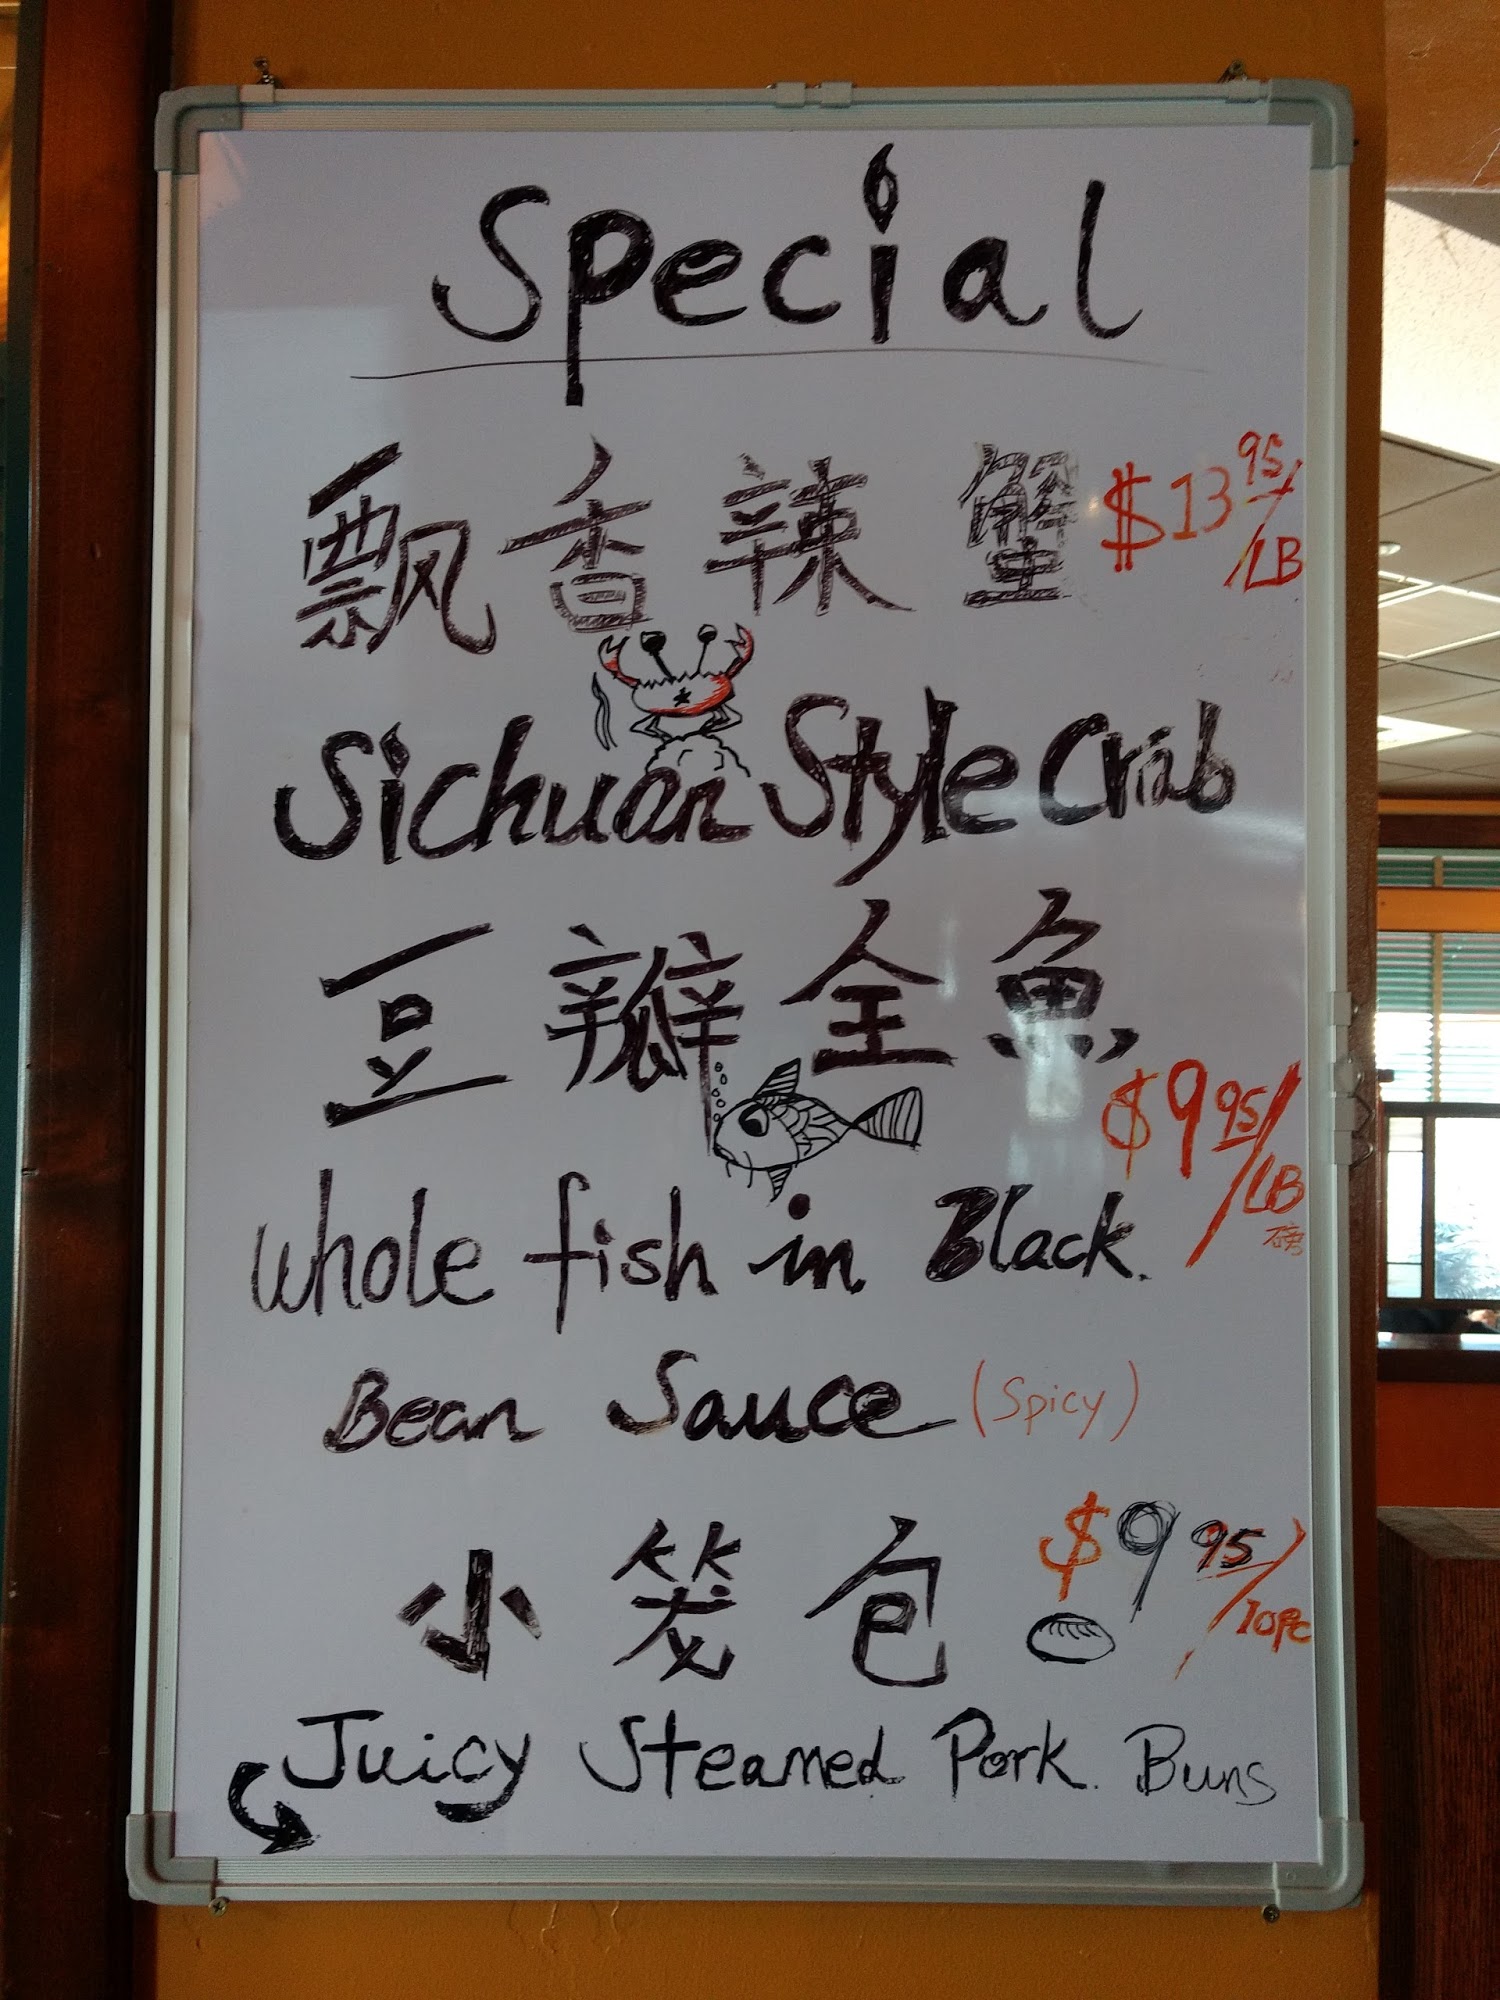 Special
飘香辣蟹 $13.95/LB
Sichuan Style Crab
豆瓣全魚
$9.95/LB
磅
Whole fish in Black.
Bean Sauce (Spicy)
小笼包 $9.95/10pc
Juicy Steamed Pork. Buns